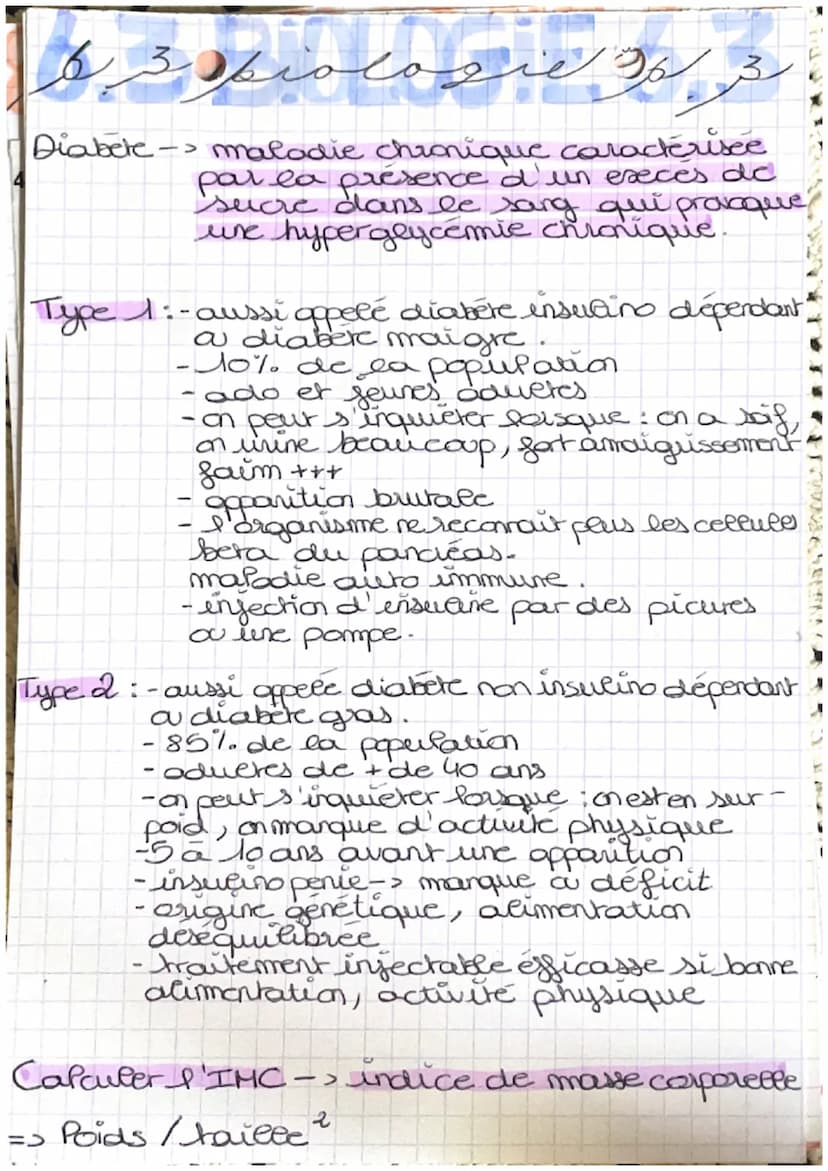 6.3 BiOLOGiE 6.3
6.3 biologie 6.3
Diabète -> maladie chronique caractérisée
par la présence d'un execés de
sucre dans le sang qui provoque
une hyperglycémie chronique.
Type 1 : - aussi appelé diabète insulino dépendant
ou diabète maigre.
- 10% de la population
- ado et jeunes adultes
- on peut s'inquiéter lorsque : on a soif,
on urine beaucoup, fort amaiguissement
faim +++
- apparition brutale
- l'organisme ne reconnait plus les cellules
beta du pancréas.
maladie auto immune.
- injection d'insuline par des picures
ou une pompe.
Type 2 : - aussi appelé diabète non insulino dépendant
ou diabète gras.
- 85% de la population
- adultes de + de 40 ans
- on peut s'inquiéter lorsque : on est en sur-
poid, on manque d'activité physique
- 5 à 10 ans avant une apparition
- insulino penie -> manque ou déficit
- origine génétique, alimentation
deséquilibrée
- traitement injectable éfficasse si bonne
alimentation, activité physique
Calculer l'IMC -> indice de masse corporelle
=> Poids / taille²